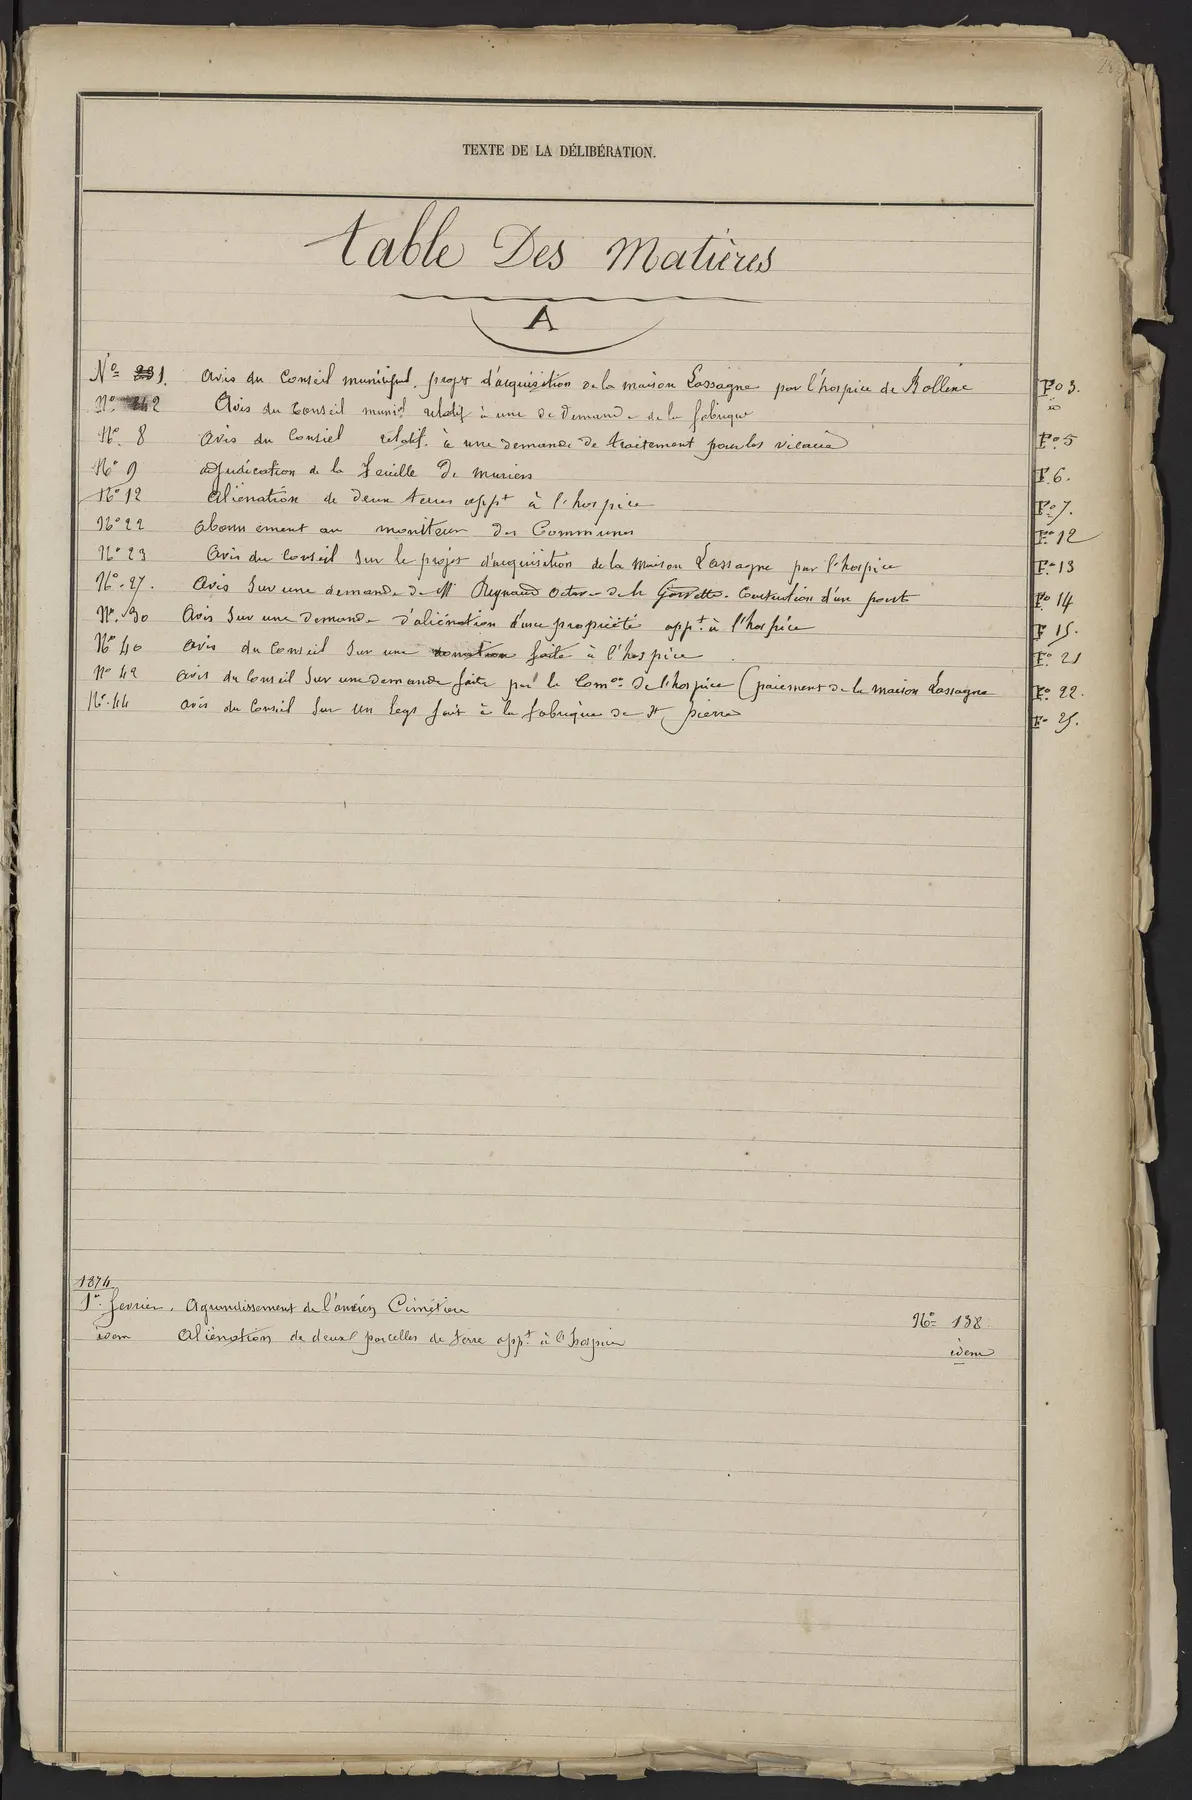 TEXTE DE LA DÉLIBÉRATION.
Table Des Matières
A
No 1. Avis du Conseil municipal. projet d'acquisition de la maison Lassagne par l'hospice de Bollène Fo 3.
No 2 Avis du Conseil munic.l relatif à une de demande de la fabrique id
No. 8 Avis du Conseil relatif. à une demande de traitement pour les vicaires Fo. 5
No 9 adjudication de la feuille de muriers F. 6.
No 12 aliénation de deux terres appt à l'hospice Fo 7.
No 22 abonnement au moniteur des Communes Fo 12
No 23 Avis du Conseil sur le projet d'acquisition de la maison Lassagne par l'hospice Fo 13
No. 27. Avis sur une demande de Mr Reynaud de la . Construction d'un pont Fo 14
No. 30 Avis sur une demande d'aliénation d'une propriété appt. à l'hospice F 15.
No 40 avis du Conseil sur une donation faite à l'hospice Fo 21
No 42 avis du Conseil sur une demande faite par la Comon de l'hospice (paiement de la maison Lassagne Fo 22.
No. 44 avis du Conseil sur un legs fait à la fabrique de St pierre Fo 25.
1874
1er fevrier. Agrandissement de l'ancien Cimetière No 138
idem Aliénation de deux parcelles de terre appt. à l'hospice idem